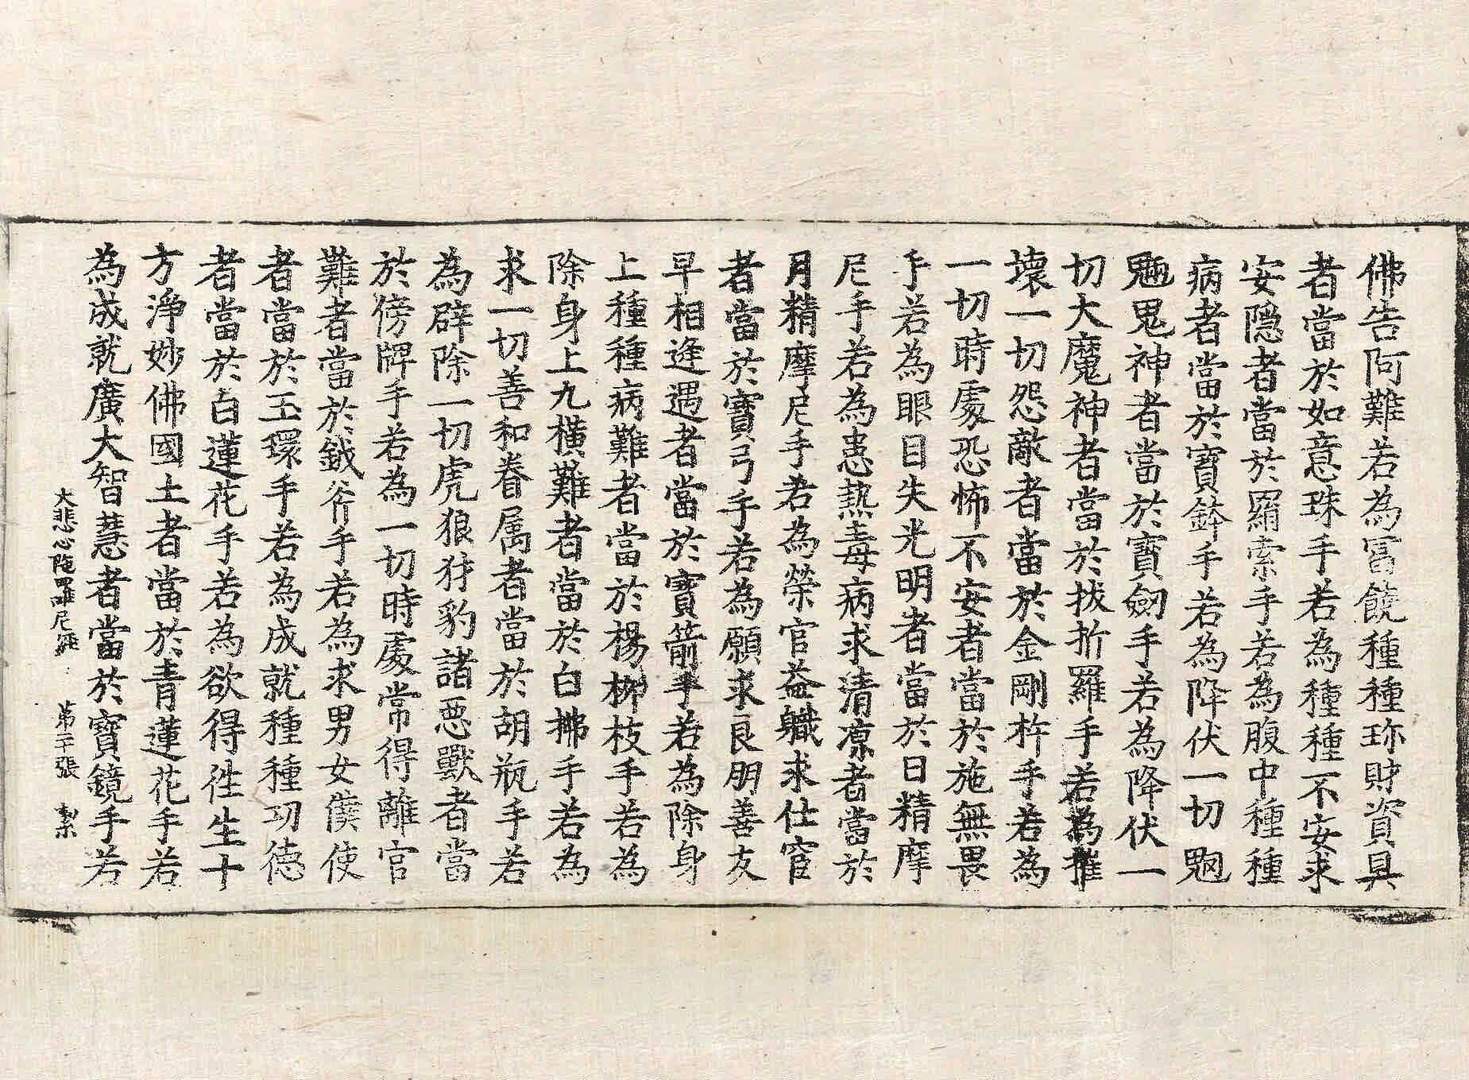 佛告阿難若為冨饒種種珎財資具
者當於如意珠手若為種種不安求
安隱者當於羂索手若為腹中種種
病者當於寶鉢手若為降伏一切魍
魎鬼神者當於寶劒手若為降伏一
切大魔神者當於拔折羅手若為摧
壞一切怨敵者當於金剛杵手若為
一切時䖏恐怖不安者當於施無畏
手若為眼目失光明者當於日精摩
尼手若為患熱毒病求清凉者當於
月精摩尼手若為榮官益軄求仕官
者當於寶弓手若為願求良朋善友
早相逢遇者當於寶箭手若為除身
上種種病難者當於楊枊枝手若為
除身上九橫難者當於白拂手若為
求一切善和眷属者當於胡瓶手若
為辟除一切虎狼犲豹諸惡獸者當
於傍牌手若為一切時䖏常得離官
難者當於鉞斧手若為求男女僕使
者當於玉環手若為成就種種功德
者當於白蓮花手若為欲得徃生十
方淨妙佛國土者當於青蓮花手若
為成就廣大智慧者當於寶鏡手若
大悲心陁羅尼經 第二十張